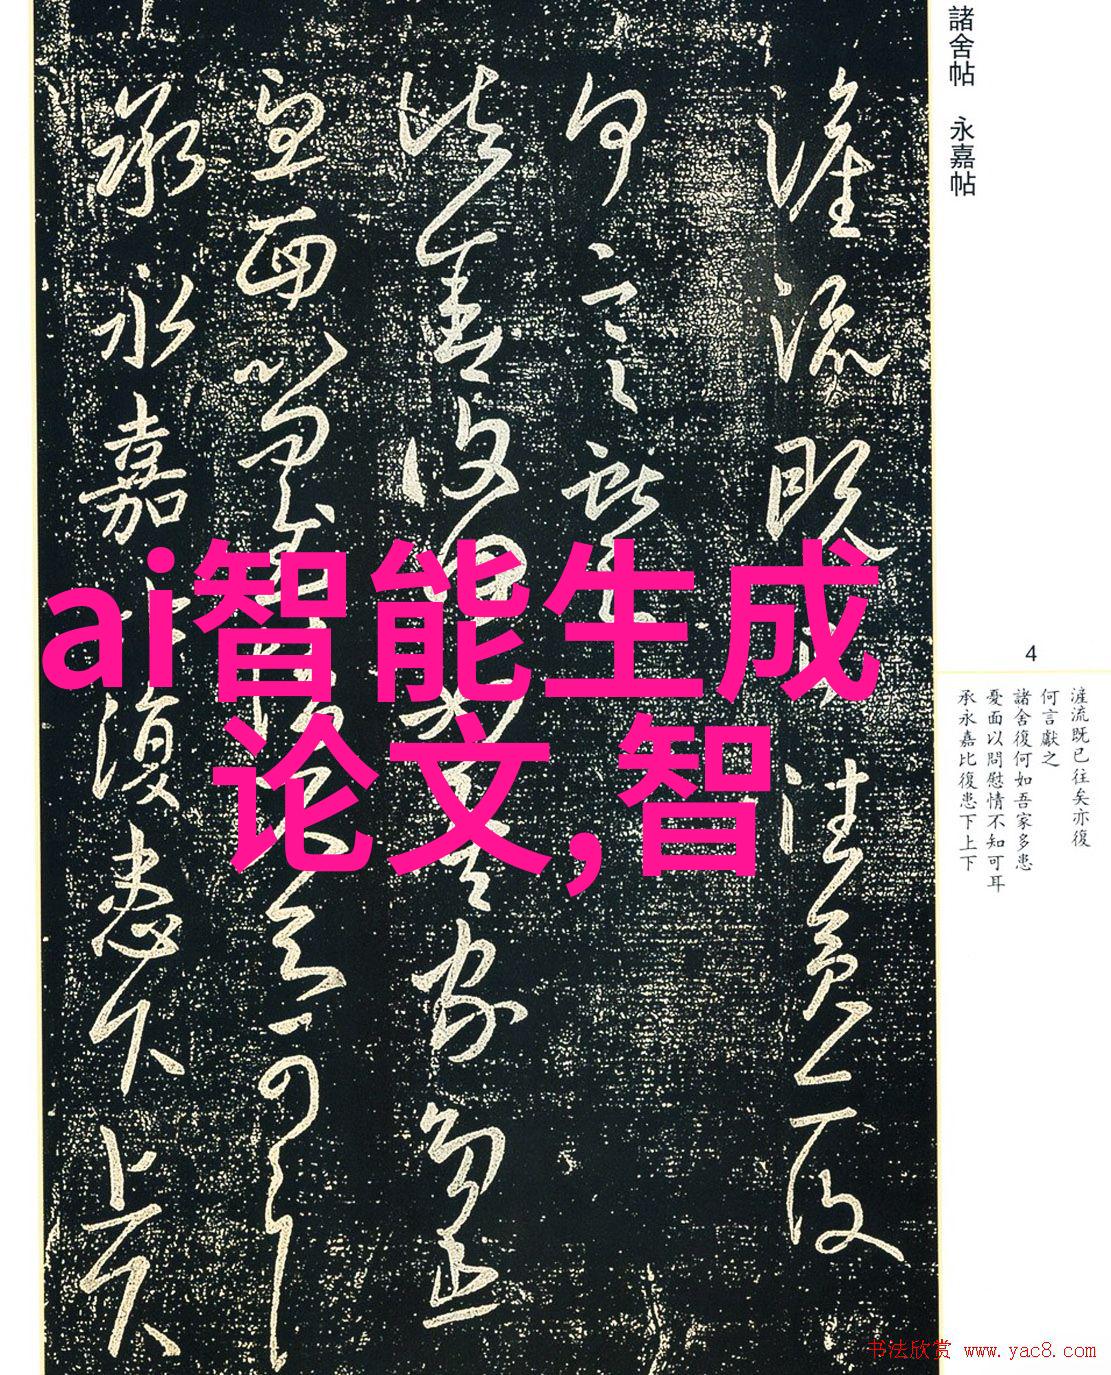 諸舍帖 永嘉帖
4
漄流既已往矣亦復
何言獻之
諸舍復何如吾家多患
憂面以問慰情不知可耳
承永嘉比復患下上下
ai智能生成
论文,智
书法欣赏 www.yac8.com